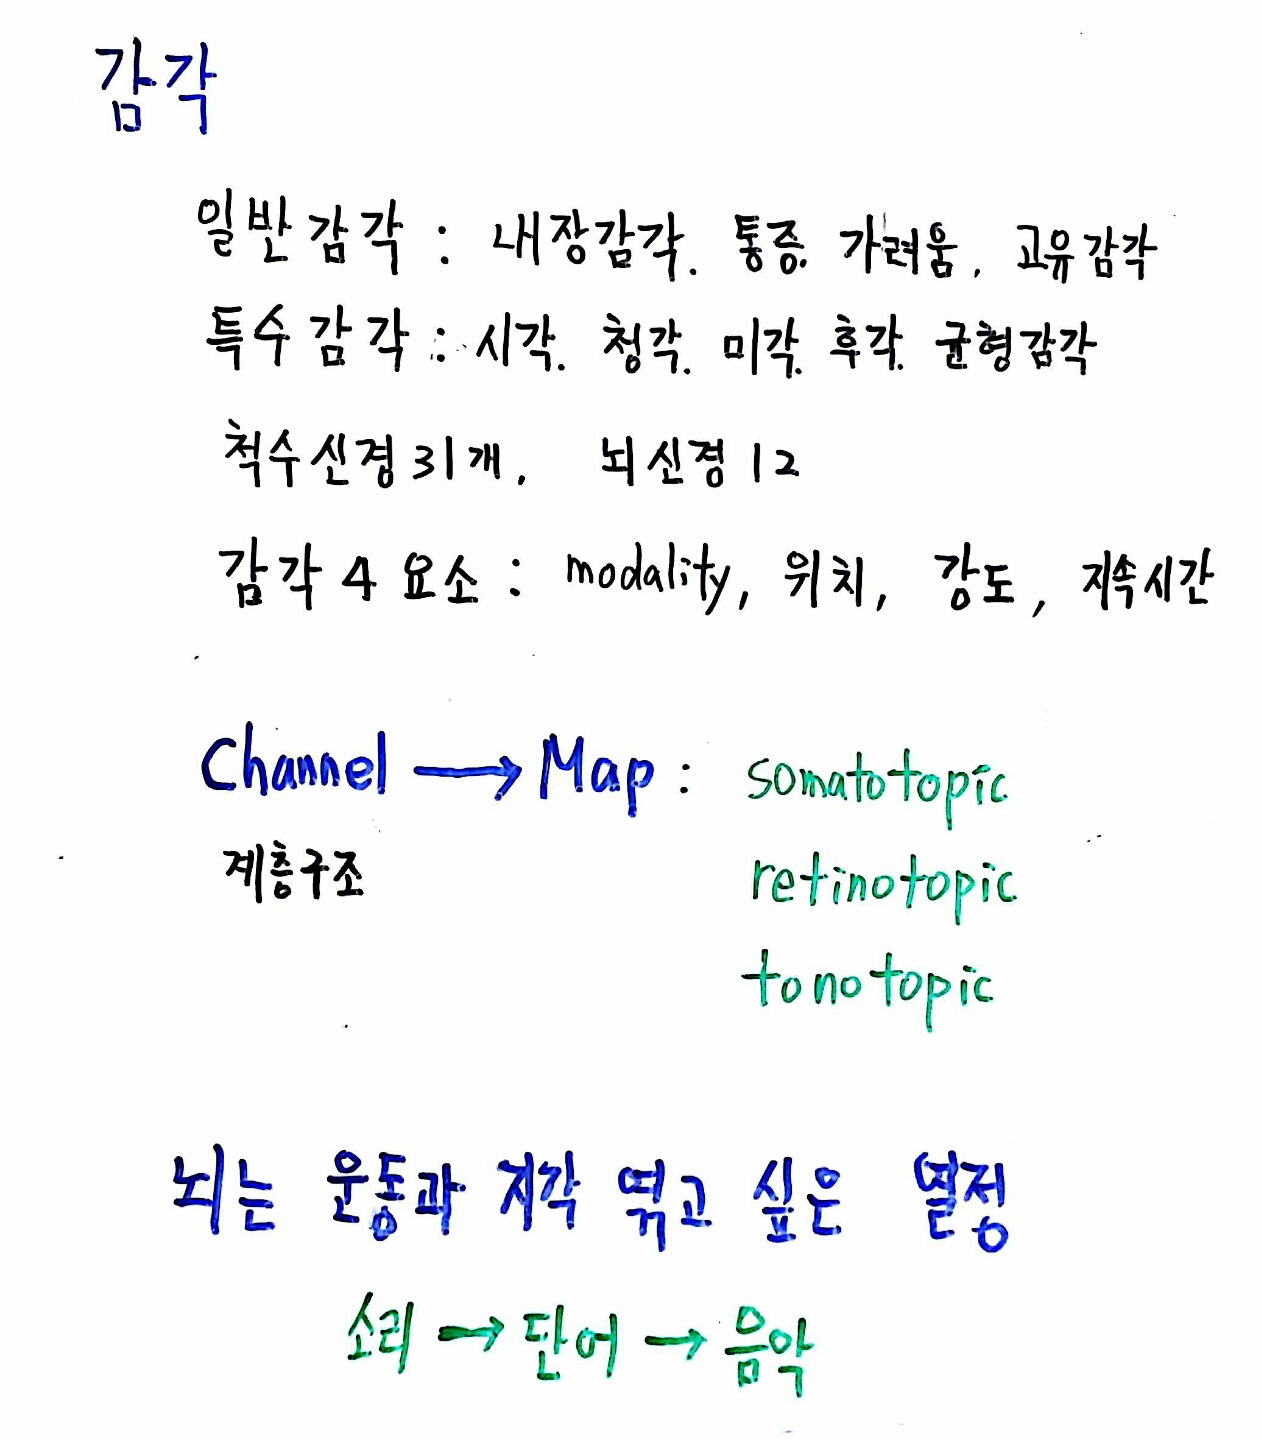 감각
일반감각 : 내장감각. 통증. 가려움, 고유감각
특수감각 : 시각. 청각. 미각. 후각. 균형감각
척수신경 31개, 뇌신경 12
감각 4 요소 : modality, 위치, 강도, 지속시간
Channel → Map : somatotopic
계층구조
retinotopic
tonotopic
뇌는 운동과 지각 엮고 싶은 열정
소리 → 단어 → 음악